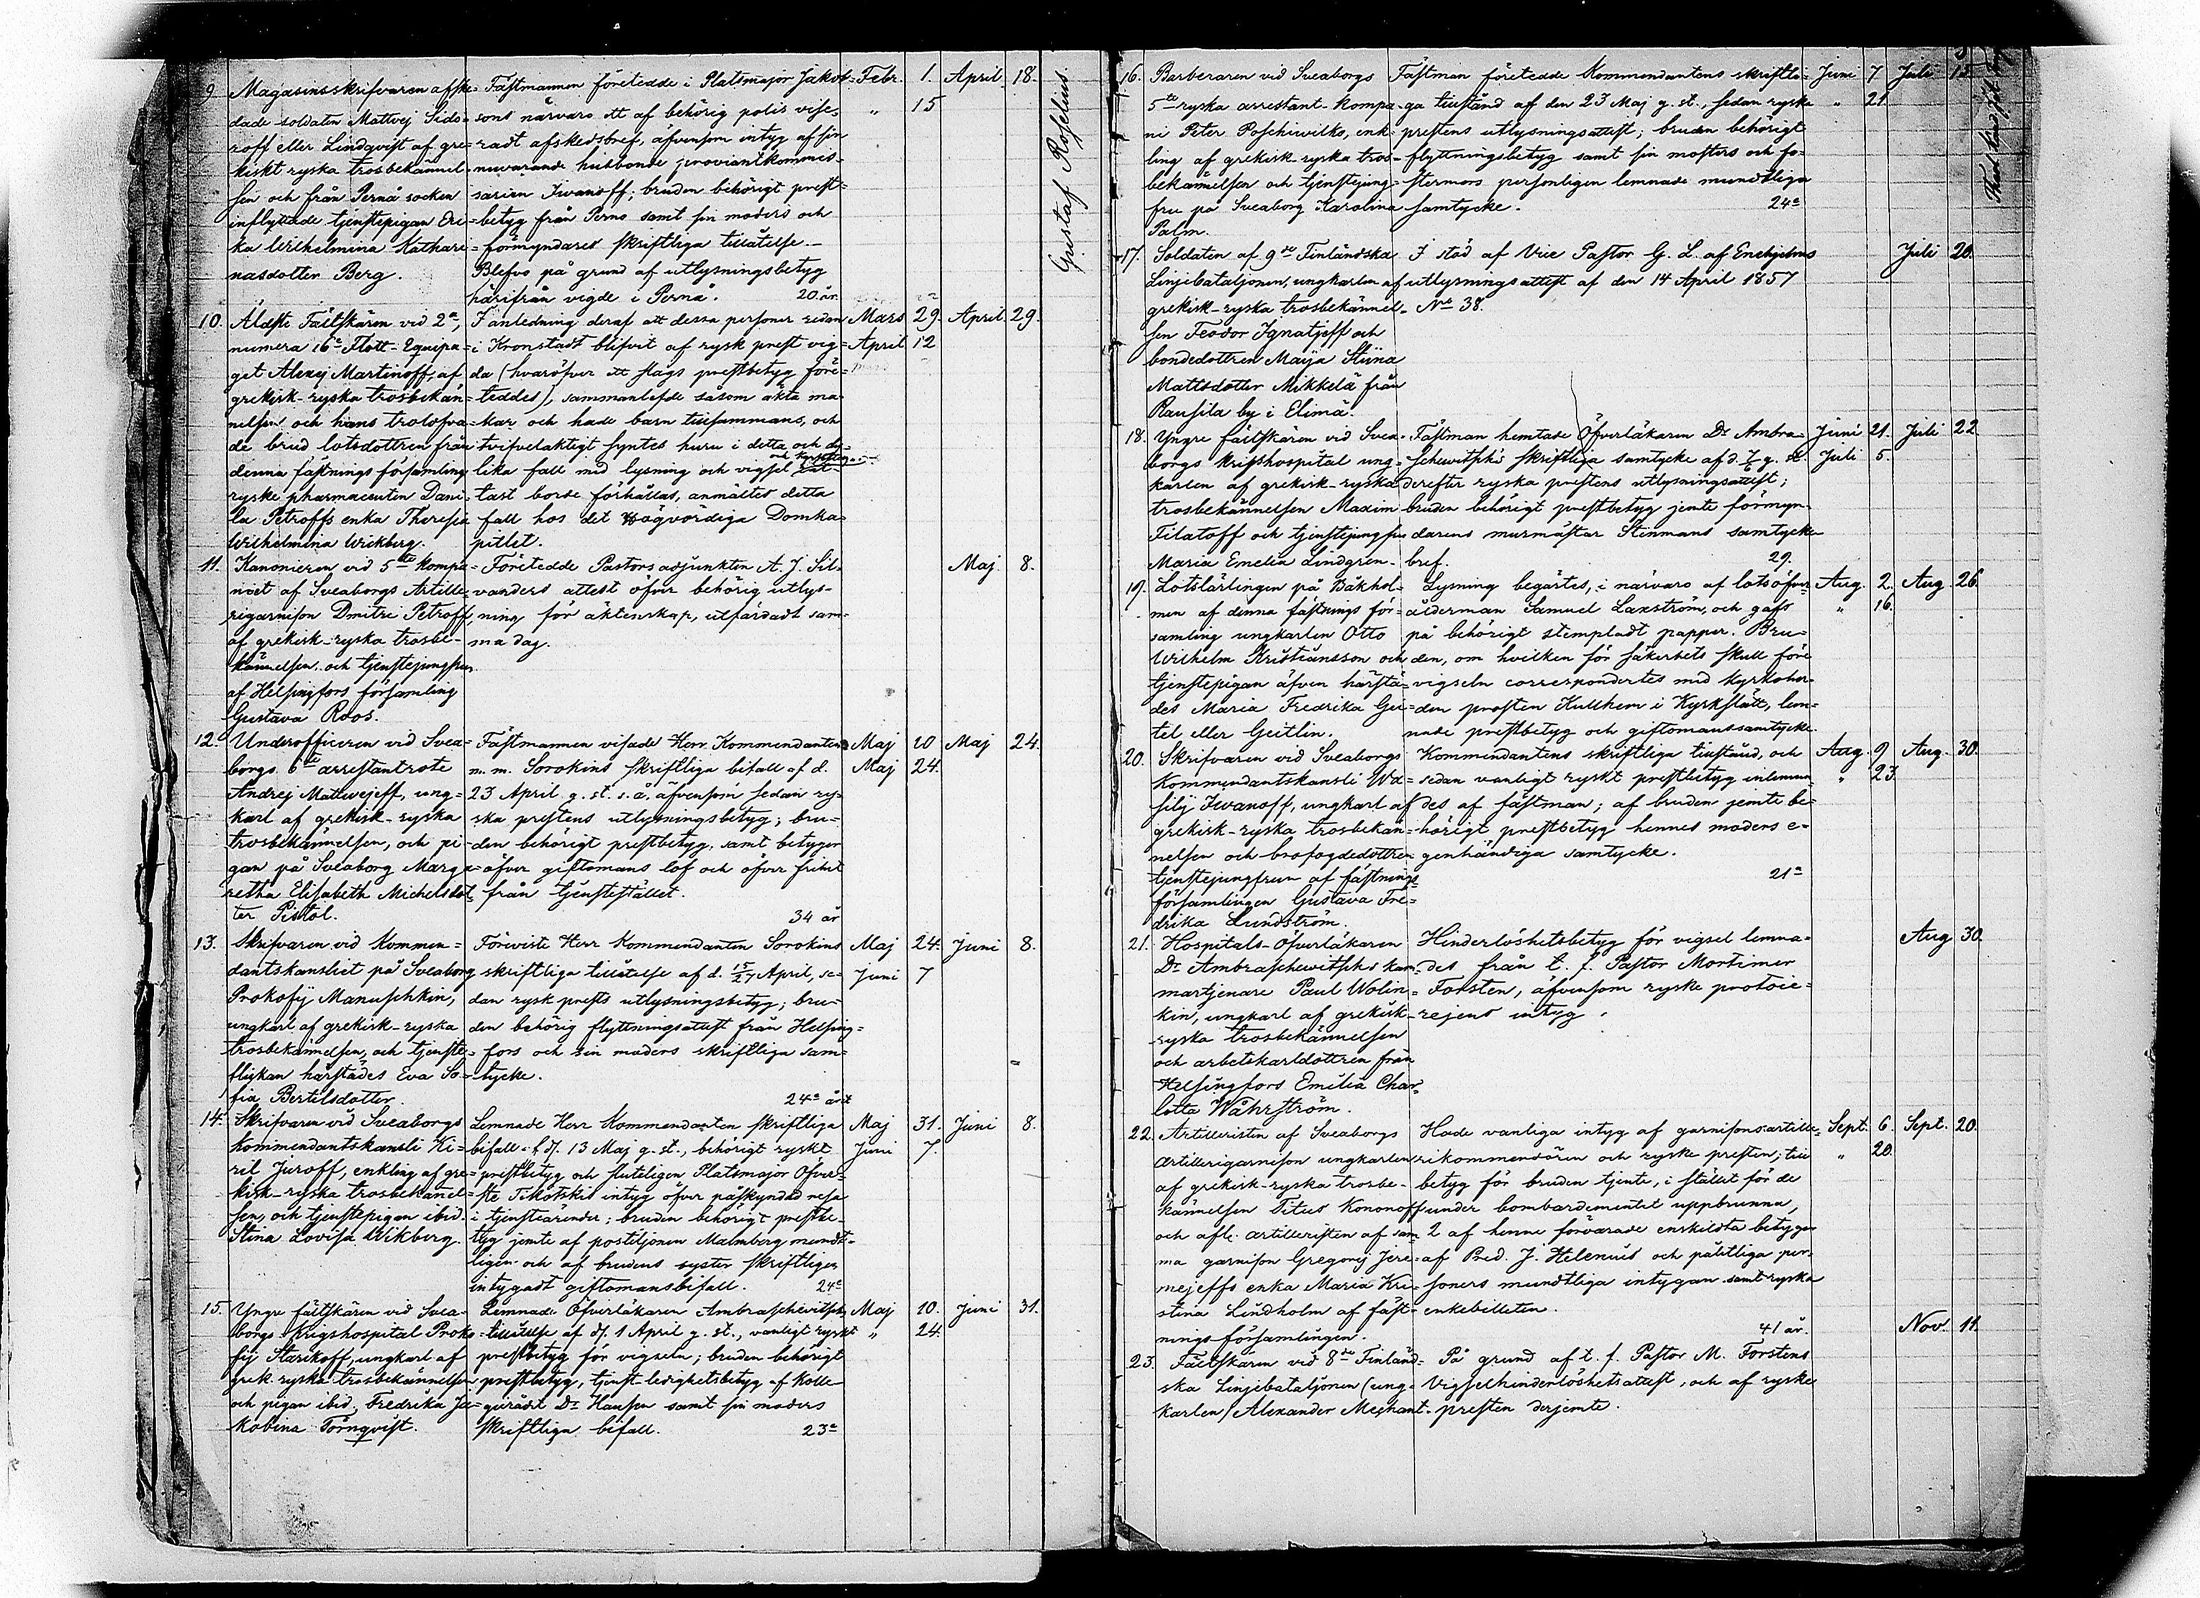 9 Magasinsskrifvaren afske-
dade soldaten Mattvej Sido-
roff eller Lindqvist af gre-
kiskt ryska trosbekännel-
sen och från Pernå socken
inflyttade tjenstepigan Eri-
ka Wilhelmina Kathari-
nasdotter Berg.
Fästmannen företedde i Platsmajor Jakob-
sons närvaro ett af behörig polis vise-
radt afskedsbref, äfvensom intyg af sin
nuvarande husbonde proviantkommis-
sarien Iwanoff; bruden behörigt prest-
betyg från Perno samt sin moders och
förmyndares skriftliga tillåtelse.-
Blefvo på grund af utlysningsbetyg
härifrån vigde i Pernå. 20 år
Febr. 1. April 18.
" 15
10. Äldste Fältskären vid 2a,
numera 16e Flott-Equipa-
get Alexej Martinoff, af
grekisk-ryska trosbekän-
nelsen och hans trolofva-
de brud lotsdottren från
denna fästnings församling
ryske pharmaceuten Dani-
la Petroffs enka Theresia
Wilhelmina Wickberg.
I anledning deraf att dessa personer redan
i Kronstadt blifvit af rysk prest vig-
da (hvaröfver ett slags prestbetyg före-
teddes), sammanlefde såsom äkta ma-
kar och hade barn tillsammans, och
tvifvelaktigt syntes huru i detta och dy-
lika fall med lysning och vigsel
tast borde förhållas, anmältes detta
fall hos det Högvördiga Domka-
pitlet.
Mars 29. April 29.
April 12
11. Kanonieren vid 5te kompa-
niet af Sveaborgs Artille-
rigarnison Dmitri Petroff,
af grekisk-ryska trosbe-
kännelsen, och tjenstejungfrun
af Helsingfors församling
Gustava Roos.
Företedde Pastorsadjunkten A. J. Sil-
vanders attest öfver behörig utlys-
ning för äktenskap, utfärdadt sam-
ma dag.
Maj 8.
12. Underofficeren vid Svea-
borgs 6te arrestantrote
Andrej Mattwejeff, ung-
karl af grekisk-ryska
trosbekännelsen, och pi-
gan på Sveaborg Marga-
retha Elisabeth Michelsdot-
ter Pistol.
Fästmannen visade Herr Kommendanten
m. m. Sorokins skriftliga bifall af d.
23 April g. st. s. å, äfvensom sedan ry-
ska prestens utlysningsbetyg; bru-
den behörigt prestbetyg, samt betygen
öfver giftomans lof och öfver frihet
från tjenstestället.
34 år
Maj 10 Maj 24.
Maj 24.
13. Skrifvaren vid Kommen-
dantskansliet på Sveaborg
Prokofij Manuschkin,
ungkarl af grekisk-ryska
trosbekännelsen, och tjenste-
flickan härstädes Eva So-
fia Bertilsdotter
Föreviste Herr Kommendanten Sorokins
skriftliga tillåtelse af d. 15/27 April, se-
dan rysk prests utlysningsbetyg; bru-
den behörig flyttningsattest från Helsing-
fors och sin moders skriftliga sam-
tycke.
24a året
Maj 24. Juni 8.
Juni 7
14. Skrifvaren vid Sveaborgs
Kommendantskansli Ki-
ril Juroff, enkling af gre-
kisk-ryska trosbekännel-
sen, och tjenstepigan ibid.
Stina Lovisa Wikberg.
Lemnade Herr Kommendanten skriftliga
bifall af d. 13 Maj g. st., behörigt ryskt
prestbetyg och sluteligen Platsmajor Öfver-
ste Tikotskis intyg öfver påskyndad resa
i tjensteärende; bruden behörigt prestbe-
tyg jemte af postiljonen Malmberg mundt-
ligen och af brudens syster skriftligen
intygadt giftomansbifall. 24e
Maj 31. Juni 8.
Juni 7.
15. Yngre fältskären vid Svea-
borgs Krigshospital Proko-
fij Starikoff, ungkarl af
grek. ryska trosbekännelsen
och pigan ibid. Fredrika Ja-
kobina Törnqvist.
Lemnade Öfverläkaren Ambraschewitschs
tillåtelse af d. 1 April g. st., vanligt ryskt
prestbetyg för vigseln; bruden behörigt
prestbetyg, tjenst-ledighetsbetyg af Kolle-
giirådet Dr Hansen samt sin moders
skriftliga bifall. 23a
Maj 10. Juni 31.
" 24.
Gustaf Roselius
16. Barberaren vid Sveaborgs
5te ryska arrestant-kompa-
ni Peter Poschiwilko, enk-
ling af grekisk-ryska tros-
bekännelsen och tjenstejung-
fru på Sveaborg Karolina
Palm.
Fästman företedde Kommendantens skriftli-
ga tillstånd af den 23 Maj g. st., sedan ryska
prestens utlysningsattest; bruden behörigt
flyttningsbetyg samt sin mosters och fo-
stermors personligen lemnade mundtliga
samtycke. 24a
Juni 7 Juli 15.
" 21
17. Soldaten af 9de Finländska
Linjebataljonen, ungkarlen af
grekisk-ryska trosbekännel-
sen Teodor Ignatjeff och
bondedottren Maija Stiina
Mattsdotter Mikkelä från
Raussila by i Elimä.
I stöd af Vice Pastor G. L. af Enehjelms
utlysningsattest af den 14 April 1857
No 38.
Juli 20.
18. Yngre fältskären vid Svea-
borgs krigshospital ung-
karlen af grekisk-ryska
trosbekännelsen Maxim
Filatoff och tjenstejungfru
Maria Emelia Lindgren.
Fästman hemtade Öfverläkaren Dr Ambra-
schewitschs skriftliga samtycke af d. 7/6 g. st
derefter ryska prestens utlysningsattest;
bruden behörigt prestbetyg jemte förmyn-
darens murmästar Stenmans samtycke
bref. 29.
Juni 21. Juli 22
Juli 5.
19. Lotslärlingen på Båkhol-
men af denna fästnings för-
samling ungkarlen Otto
Wilhelm Kristiansson och
tjenstepigan äfven härstä-
des Maria Fredrika Gei-
tel eller Geitlin.
Lysning begärtes, i närvaro af lotsöfver-
ålderman Samuel Laxström, och gafs
på behörigt stempladt papper. Bru-
den, om hvilken för säkerhets skull före
vigseln correspondertes med kyrkoher-
den prosten Kullhem i Kyrkslätt, lem-
nade prestbetyg och giftomanssamtycke.
Aug. 2. Aug 26.
" 16.
20. Skrifvaren vid Sveaborgs
Kommendantskansli Wa-
silij Iwanoff, ungkarl af
grekisk-ryska trosbekän-
nelsen och brofogdedottren
tjenstejungfrun af fästnings-
församlingen Gustava Fre-
drika Lundström.
Kommendantens skriftliga tillstånd, och
sedan vanligt ryskt prestbetyg inlemna-
des af fästman; af bruden jemte be-
hörigt prestbetyg hennes moders e-
genhändiga samtycke.
21a
Aug. 9 Aug. 30.
" 23.
21. Hospitals-Öfverläkaren
Dr Ambraschewitschs kam-
martjenare Paul Wolin-
kin, ungkarl af grekisk-
ryska trosbekännelsen
och arbetskarldottren från
Helsingfors Emilia Char-
lotta Wåhrström.
Hinderlöshetsbetyg för vigsel lemna-
des från t. f. Pastor Mortimer
Forsten, äfvensom ryske protoie-
rejens intyg.
Aug 30.
22. Artilleristen af Sveaborgs
Artillerigarnison ungkarlen
af grekisk-ryska trosbe-
kännelsen Titus Kononoff
och afl. artilleristen af sam-
ma garnison Gregorij Jere-
mejeffs enka Maria Kri-
stina Lindholm af fäst-
nings-församlingen.
Hade vanliga intyg af garnisonsartille-
rikommendören och ryske presten; till
betyg för bruden tjente, i stället för de
under bombardementet uppbrunna,
2 af henne förvarade enskilda betygen
af Pred. J. Helenius och pålitliga per-
soners mundtliga intygan samt ryska
enkebilleten.
41 år.
Sept. 6. Sept. 20.
" 20.
23. Fältskären vid 8de Finländ-
ska Linjebataljonen (ung-
karlen) Alexander Meshant-
På grund af t. f. Pastor M. Forstens
Vigselhinderlöshetsattest, och af ryske
presten derjemte.
Nov. 11.